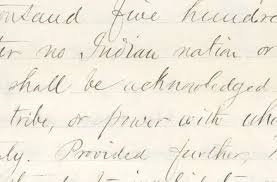 ousand five hundre
ter no Indian nation or
shall be acknowledged
tribe, or power with who
ty. Provided further,